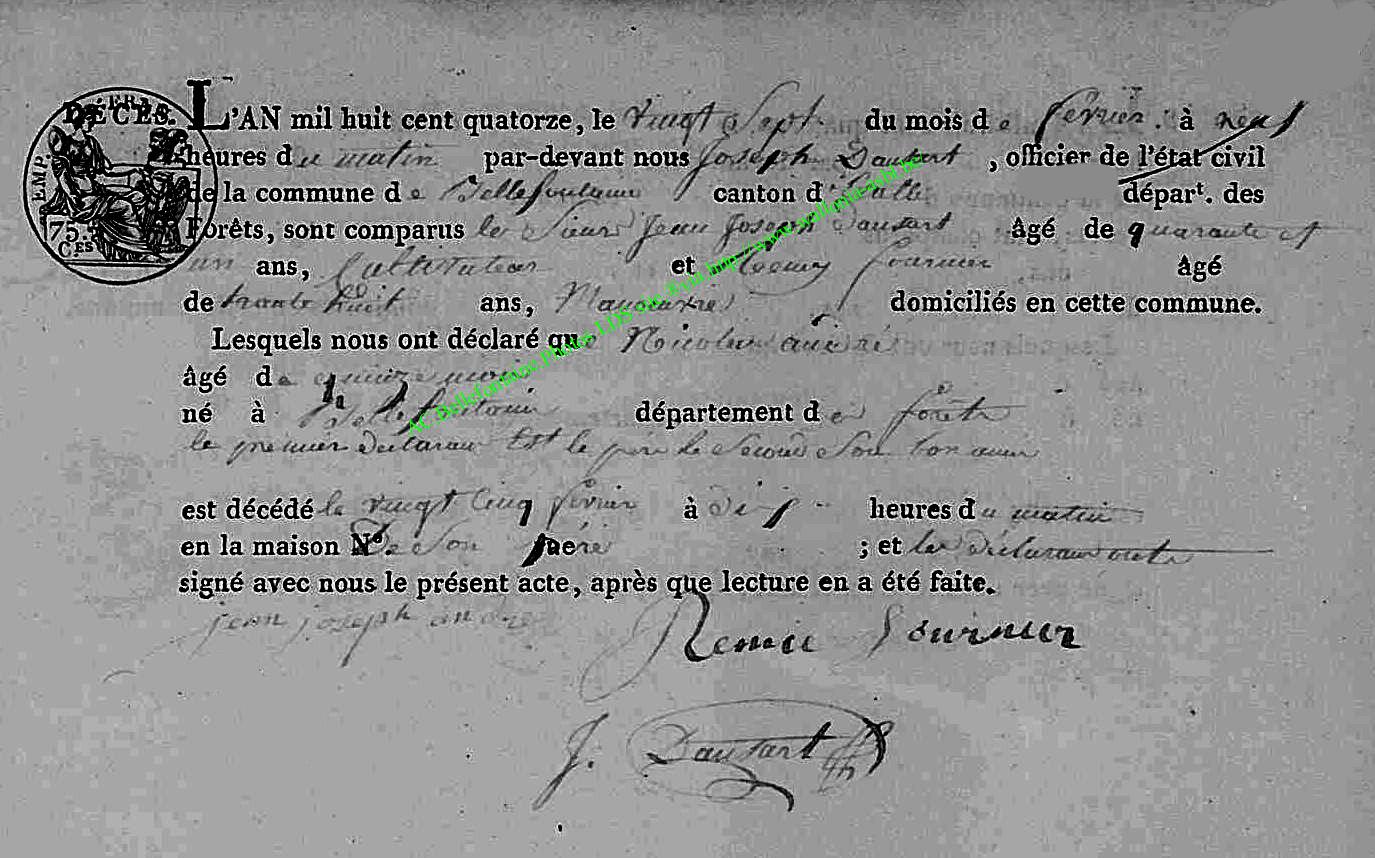 DÉCÈS. L'AN mil huit cent quatorze, le vingt Sept du mois de février à neuf
heures du matin par-devant nous Joseph Dautart, officier de l'état civil
de la commune de Bellefontaine canton d' départ. des
Forêts, sont comparus le Sieur Jean Joseph Dautart âgé de quarante et
un ans, Cultivateur et Remy fournier âgé
de trente huit ans, domiciliés en cette commune.
Lesquels nous ont déclaré que Nicolas andré
âgé de quinze mois
né à Bellefontaine département de forêts
le premier declarant Est le père le Second Son
est décédé le vingt Cinq février à dix heures du matin
en la maison N°. De Son père ; et les déclarants ont
signé avec nous le présent acte, après que lecture en a été faite.
jean joseph andre Remie Fournier
J. Dautart
EMP. FRA.
75 C.ES
AC Bellefontaine Photos LDS via http://www.wallonia-asbl.be